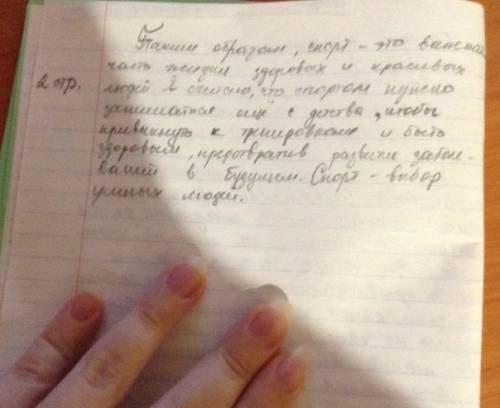 Таким образом, спорт - это важная
часть жизни здоровых и красивых
2 стр.
людей. Я считаю, что спортом нужно
заниматься ещё с детства, чтобы
привыкнуть к тренировкам и быть
здоровым, предотвратив развитие забол-
ваний в будущем. Спорт - выбор
умных людей.